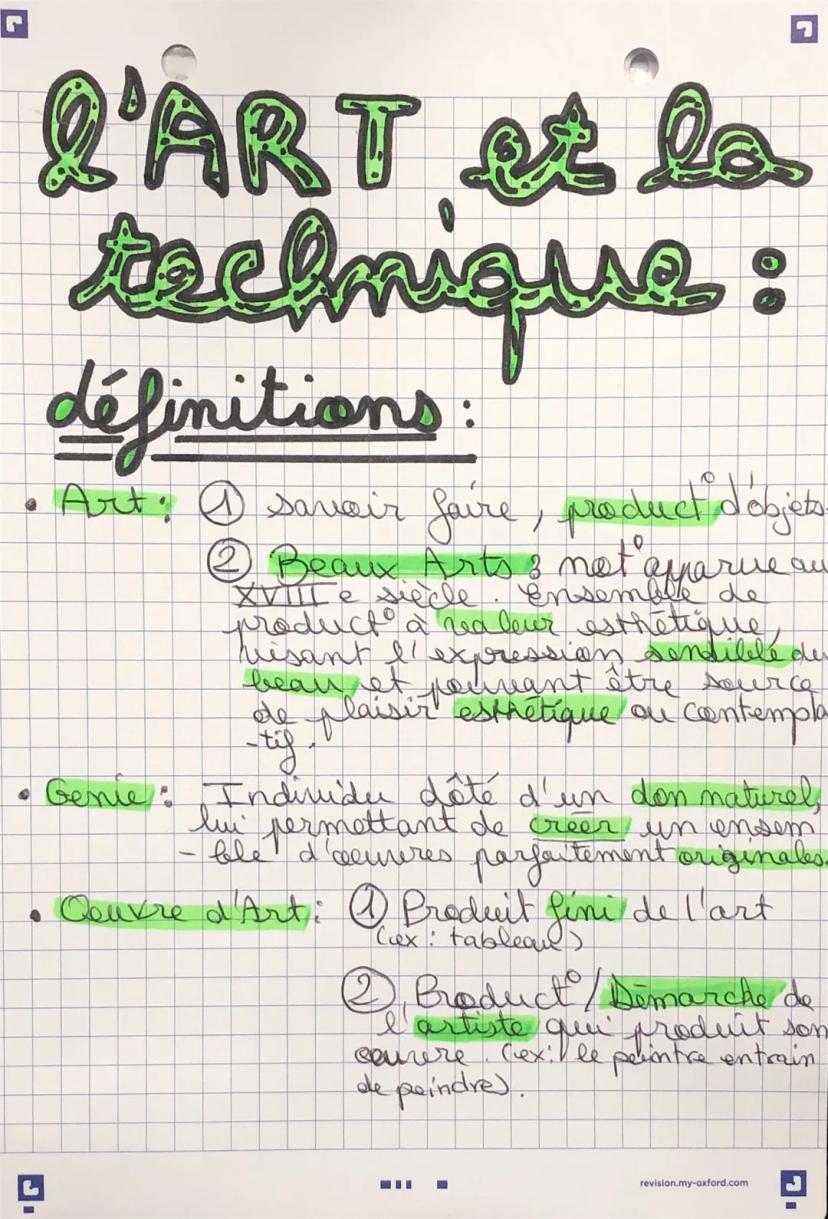 l'ART et la
technique :
définitions :
• Art : ① savoir faire, product° d'objets
② Beaux Arts : not° apparue au
XVIIIe siècle. Ensemble de
product° à valeur esthétique,
visant l'expression sensible du
beau, et pouvant être source
de plaisir esthétique ou contempla
-tif.
• Genie : Individu dôté d'un don naturel,
lui permettant de créer un ensem
-ble d'oeuvres parfaitement originales.
• Oeuvre d'Art : ① Produit fini de l'art
(ex : tableau)
② Product°/Démarche de
l'artiste qui produit son
oeuvre. (ex : le peintre entrain
de peindre).
revision.my-oxford.com